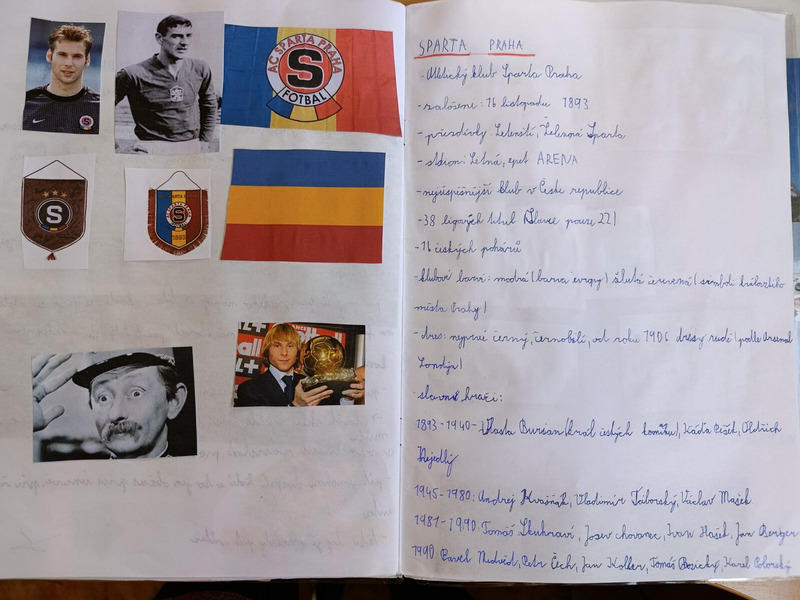 AC SPARTA PRAHA
S
FOTBAL
S
SPARTA
S
1893
SPARTA PRAHA
- Atletický klub Sparta Praha
- založení: 16 listopadu 1893
- přezdívky: Letenští, Železná Sparta
- stdion: Letná, epet ARENA
- nejúspěšnější klub v České republice
- 38 ligových titul (Slavie pouze 22)
- 16 českých pohárů
- klubové barvi: modrá (barva evropy) žlutá červená (simboli královského
města Prahy)
- dres: nejprvé černý, černobílí, od roku 1906 dresy rudé (podle Arsenal
Londýn)
- slavné hráči:
1893-1940- Vlasta Burian (král českých komiku), Káďa Pešek, Oldřich
Nejedlý
1945-1980: Andrej Kvašňák, Vladimír Táborský, Václav Mašek
1981-1990: Tomáš Skuhraví, Josev chovanec, Ivan Hašek, Jan Berger
1990: Pavel Nedvěd, Petr Čech, Jan Koller, Tomáš Rosický, Karel Poborský